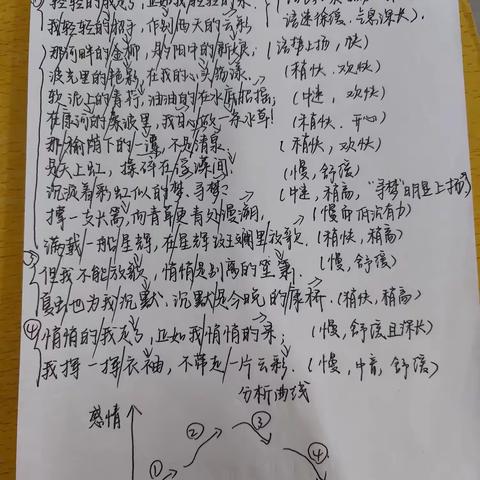 轻轻的我走了,正如我轻轻的来;
我轻轻的招手,作别西天的云彩 语速徐缓、气息深长).
那河畔的金柳,是夕阳中的新娘; (语势上扬,快)
波光里的艳影,在我的心头荡漾. (稍快.欢快)
软泥上的青荇,油油的在水底招摇; (中速,欢快)
在康河的柔波里,我甘心做一条水草! (稍快.开心)
那榆荫下的一潭,不是清泉, (稍快,欢快)
是天上虹,揉碎在浮藻间, (慢,舒缓)
沉淀着彩虹似的梦.寻梦? (中速,稍高,“寻梦”明显上扬)
撑一支长篙,向青草更青处漫溯, (慢而低沉有力)
满载一船星辉,在星辉斑斓里放歌. (稍快,稍高)
③ 但我不能放歌,悄悄是别离的笙箫. (慢,舒缓)
夏虫也为我沉默.沉默是今晚的康桥. (稍快,稍高)
④ 悄悄的我走了,正如我悄悄的来; (慢,舒缓且深长)
我挥一挥衣袖,不带走一片云彩. (慢,中音,舒缓)
分析曲线
感情
① ② ③ ④